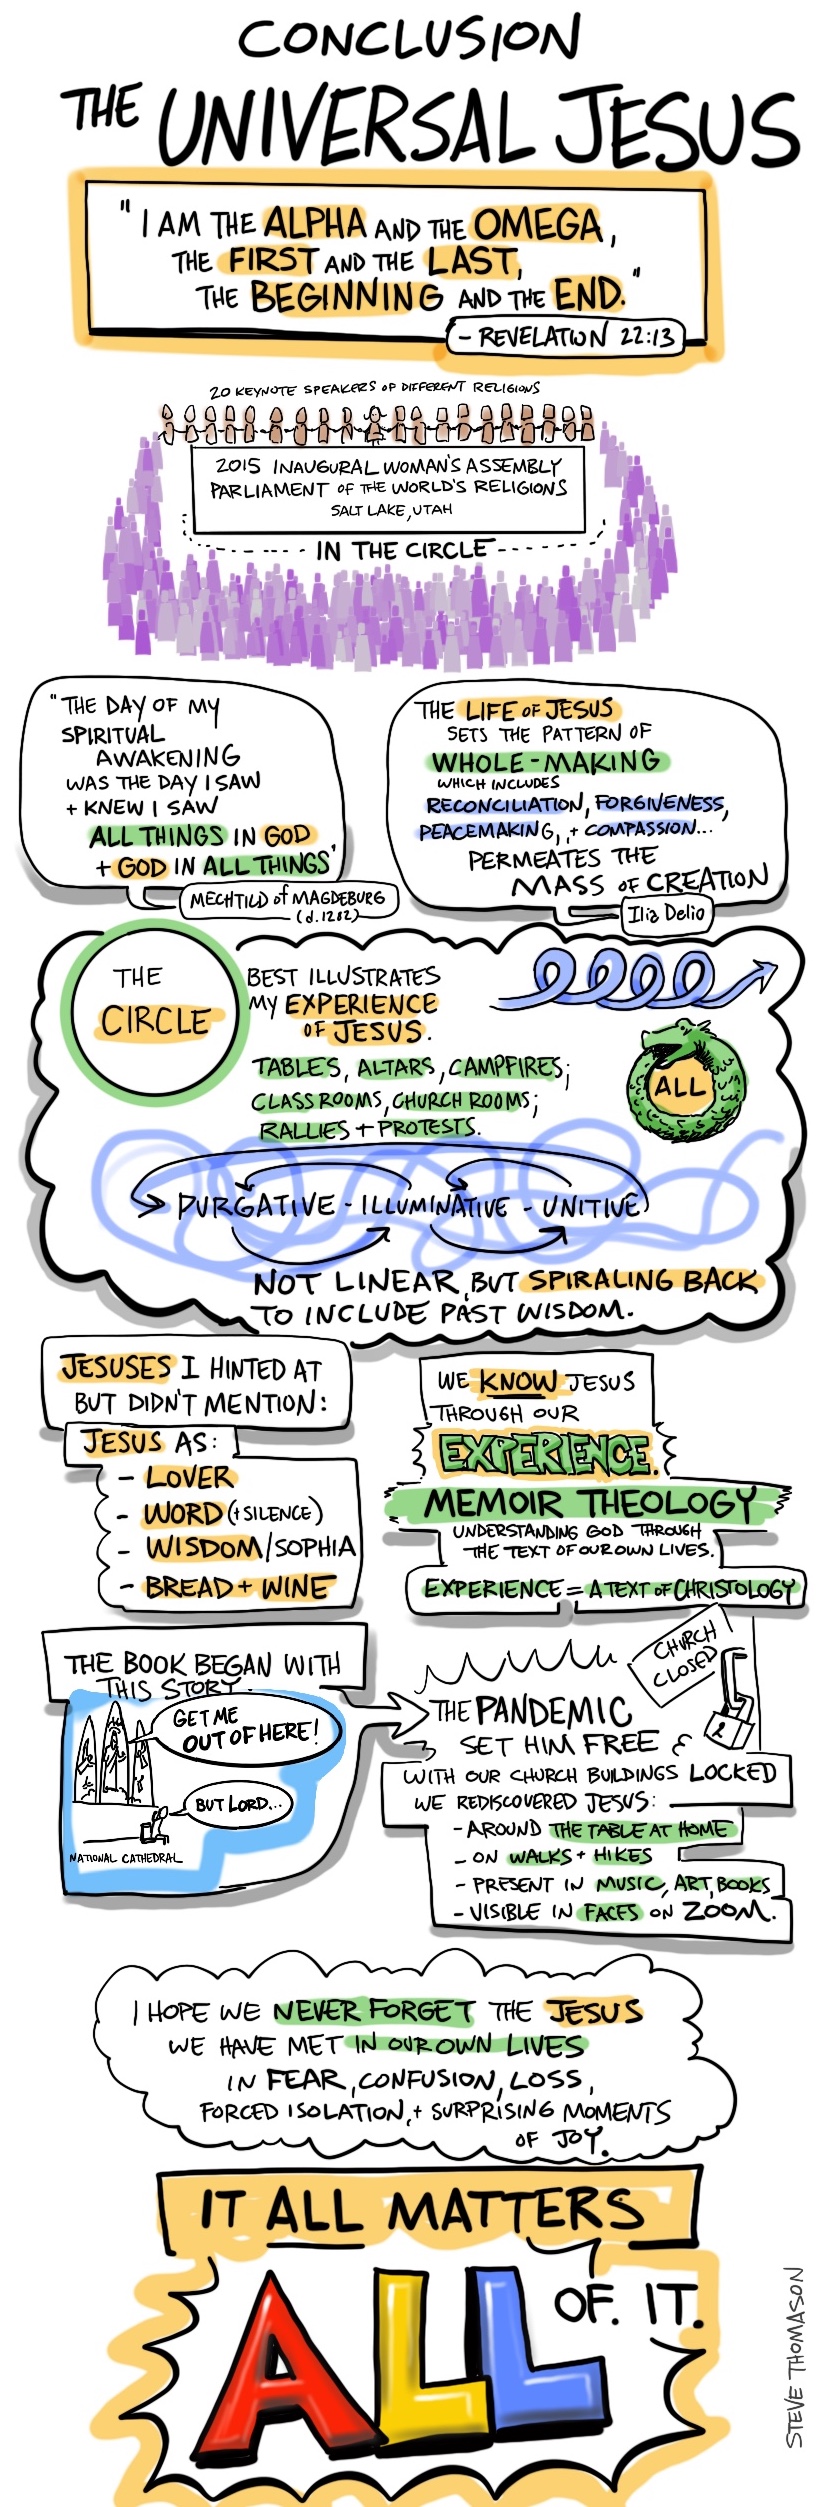 CONCLUSION
THE UNIVERSAL JESUS
"I AM THE ALPHA AND THE OMEGA,
THE FIRST AND THE LAST,
THE BEGINNING AND THE END."
- REVELATION 22:13
20 KEYNOTE SPEAKERS OF DIFFERENT RELIGIONS
2015 INAUGURAL WOMAN'S ASSEMBLY
PARLIAMENT OF THE WORLD'S RELIGIONS
SALT LAKE, UTAH
IN THE CIRCLE
"THE DAY OF MY
SPIRITUAL
AWAKENING
WAS THE DAY I SAW
+ KNEW I SAW
ALL THINGS IN GOD
+ GOD IN ALL THINGS"
MECHTILD of MAGDEBURG
(d.1282)
THE LIFE OF JESUS
SETS THE PATTERN OF
WHOLE-MAKING
WHICH INCLUDES
RECONCILIATION, FORGIVENESS,
PEACEMAKING, + COMPASSION...
PERMEATES THE
MASS OF CREATION
Ilia Delio
THE
CIRCLE
BEST ILLUSTRATES
MY EXPERIENCE
OF JESUS.
TABLES, ALTARS, CAMPFIRES;
CLASSROOMS, CHURCH ROOMS;
RALLIES + PROTESTS.
ALL
PURGATIVE - ILLUMINATIVE - UNITIVE
NOT LINEAR, BUT SPIRALING BACK
TO INCLUDE PAST WISDOM.
JESUSES I HINTED AT
BUT DIDN'T MENTION:
JESUS AS:
- LOVER
- WORD (+ SILENCE)
- WISDOM/SOPHIA
- BREAD + WINE
WE KNOW JESUS
THROUGH OUR
EXPERIENCE.
MEMOIR THEOLOGY
UNDERSTANDING GOD THROUGH
THE TEXT OF OUR OWN LIVES.
EXPERIENCE = A TEXT OF CHRISTOLOGY
THE BOOK BEGAN WITH
THIS STORY.
GET ME
OUT OF HERE!
BUT LORD...
NATIONAL CATHEDRAL
CHURCH
CLOSED
THE PANDEMIC
SET HIM FREE
WITH OUR CHURCH BUILDINGS LOCKED
WE REDISCOVERED JESUS:
- AROUND THE TABLE AT HOME
- ON WALKS + HIKES
- PRESENT IN MUSIC, ART, BOOKS
- VISIBLE IN FACES ON ZOOM.
I HOPE WE NEVER FORGET THE JESUS
WE HAVE MET IN OUR OWN LIVES
IN FEAR, CONFUSION, LOSS,
FORCED ISOLATION, + SURPRISING MOMENTS
OF JOY.
IT ALL MATTERS
ALL
OF. IT.
STEVE THOMASON